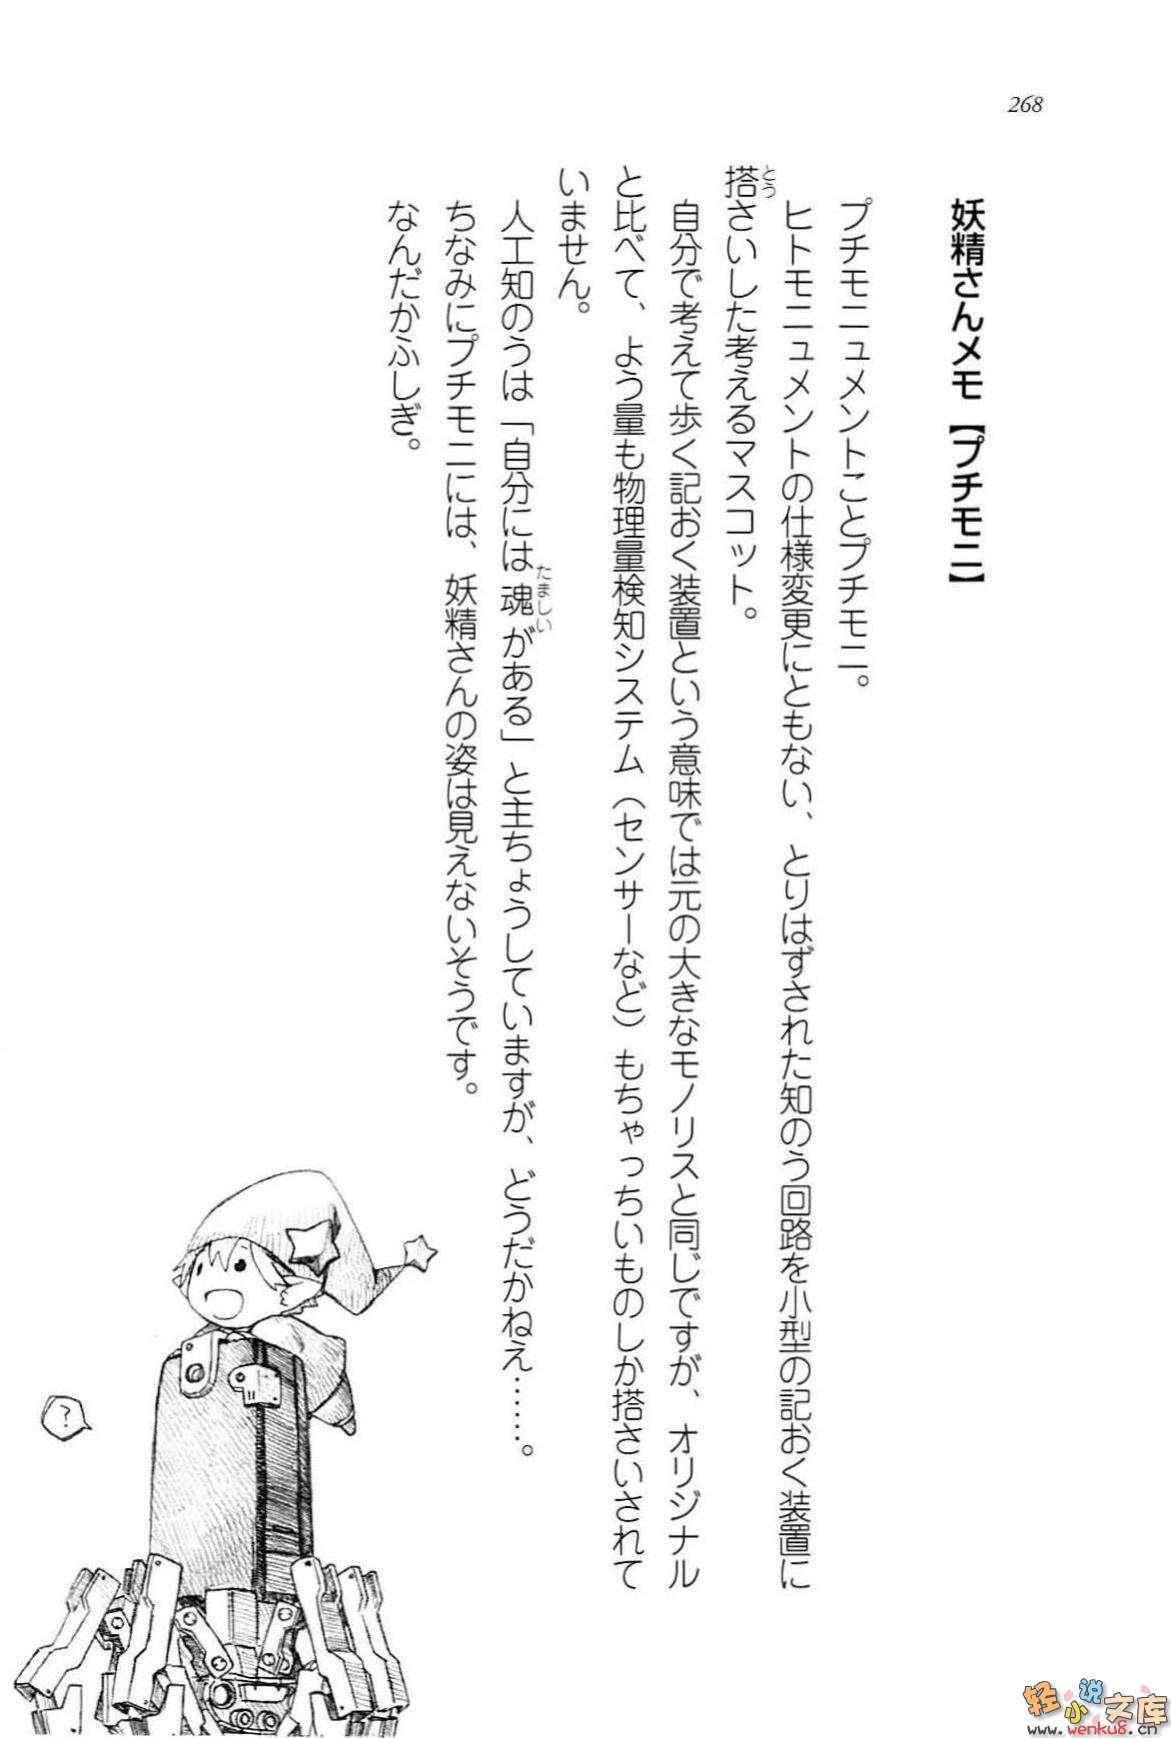 268
妖精さんメモ【プチモニ】
プチモニュメントことプチモニ。
ヒトモニュメントの仕様変更にともない、とりはずされた知のう回路を小型の記おく装置に
搭さいした考えるマスコット。
とう
自分で考えて歩く記おく装置という意味では元の大きなモノリスと同じですが、オリジナル
と比べて、よう量も物理量検知システム（センサーなど）もちゃっちいものしか搭さいされて
いません。
人工知のうは「自分には魂がある」と主ちょうしていますが、どうだかねえ……。
たましい
ちなみにプチモニには、妖精さんの姿は見えないそうです。
なんだかふしぎ。
?
轻小说文库
www.wenku8.cn